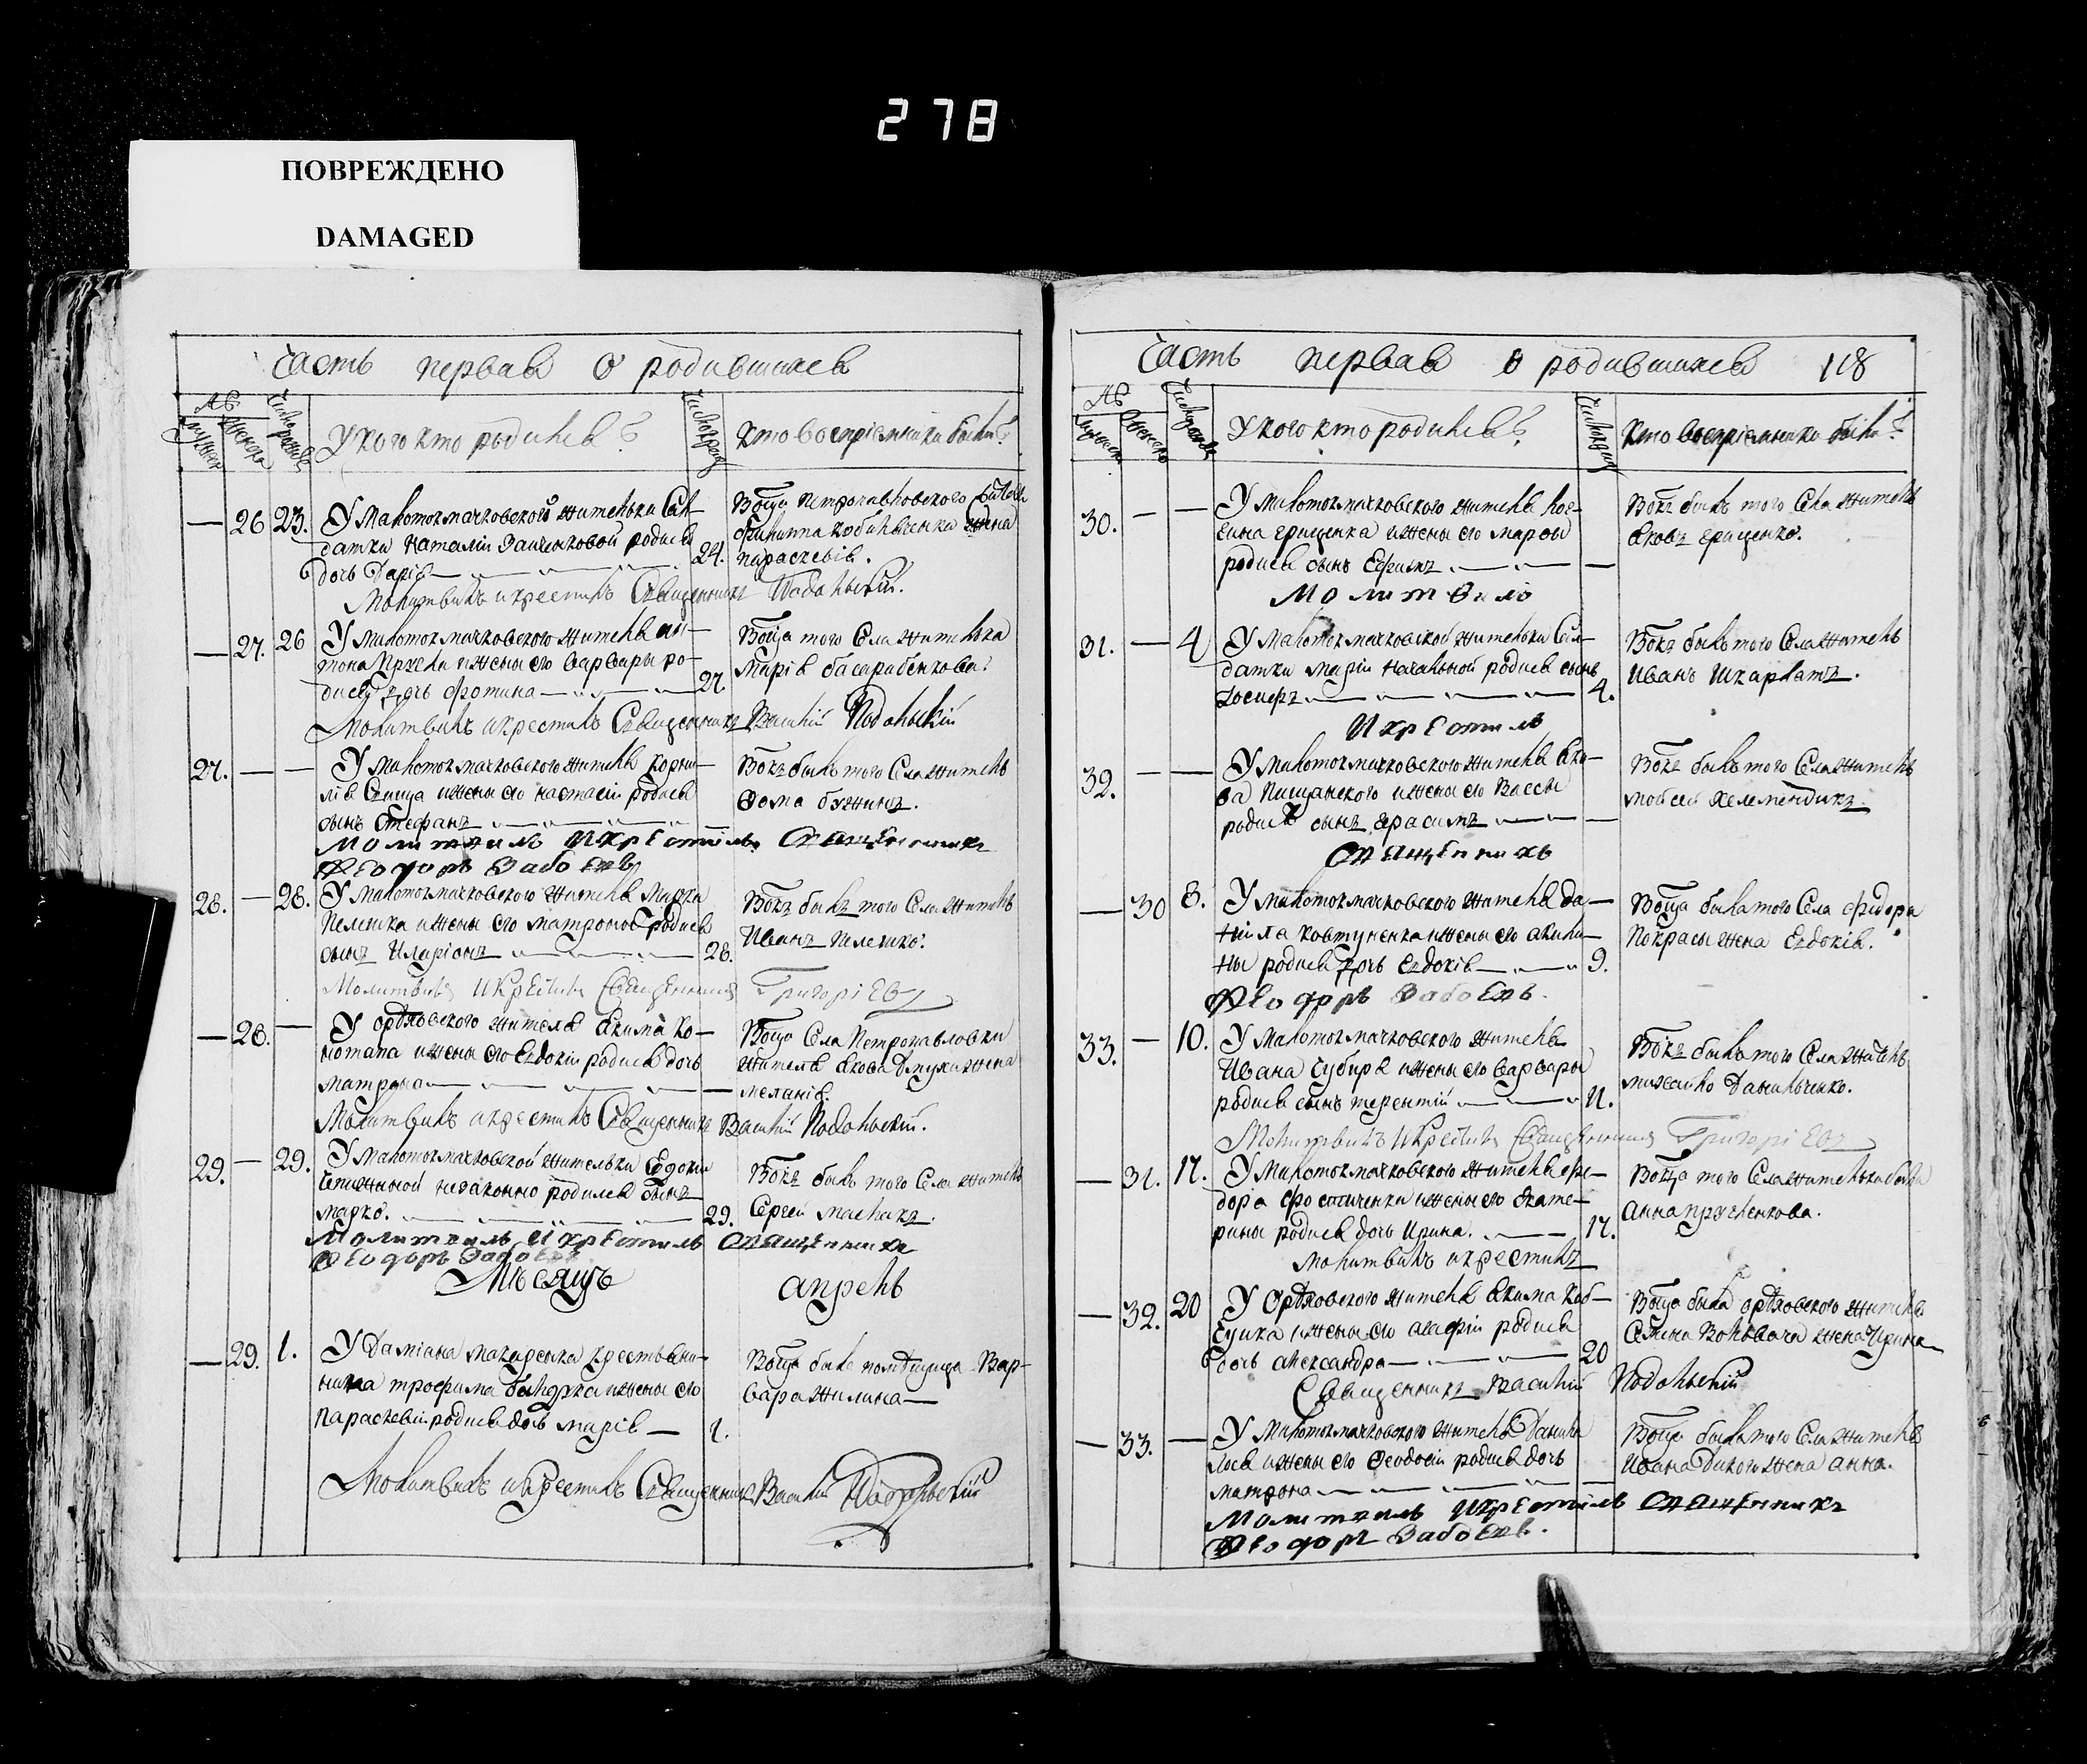 278
ПОВРЕЖДЕНО
DAMAGED
Часть первая о родившихся
№
мужеск женска
Число рождения
У кого кто родился?
Число крещ
Кто восприемники были?
— 26 23. У малотокмачковской жительки сол-
датки Наталіи родися
дочь Дарія — 24.
Воспр Петропавловского жителя
Филиппа жена
Параскевія.
Молитвилъ и крестилъ Священникъ Подольскій.
— 27. 26 У малотокмачковского жителя ан-
тона и жены его варвары ро-
дися дочь фотина — 27.
Воспр того села жителька
Марія
Молитвилъ и крестилъ Священникъ Василій Подольскій
27. — — У малотокмачковского жителя корни-
лія и жены его настасіи родися
сынъ Стефанъ —
Вокъ былъ того села житель
Фома бужинъ.
Молитвилъ И крЕстилъ СвящЕнникъ
ФЕодоръ ЗабоЕвъ
28. — 28. У малотокмачковского жителя Марка
Пелешка и жены его матроны родися
сынъ Иларіонъ — 28.
Вокъ былъ того села житель
Иванъ Пелешко.
Молитвилъ и крестилъ Священникъ Григоріевъ
— 28. — У орѣховского жителя Якима ко-
нотапа и жены его Евдокіи родися дочь
матрона —
Воспр Села Петропавловки
жителя якова жена
меланія.
Молитвилъ и крестилъ Священникъ Василій Подольскій.
29. — 29. У малотокмачковской жительки Евдокіи
незаконно родился сынъ
марко. — 29.
Вокъ былъ того села житель
Сергей маслакъ.
Молитвилъ И крЕстилъ СвящЕнникъ
ФЕодоръ ЗабоЕвъ
Мѣсяцъ апрель
— 29. 1. У Даміана макаренка крестьяни-
нина трофима и жены его
Параскевіи родися дочь марія — 1.
Воспр была помѣщица Вар-
вара жилина —
Молитвилъ и крестилъ Священникъ Василій Подольскій
Часть первая о родившихся 118
№
мужеск женско
У кого кто родился?
Кто восприемники были?
30. — — У малотокмачковского жителя
грищенка и жены его марфы
родися сынъ Ефимъ —
Вокъ былъ того села житель
яковъ грищенко.
Молитвилъ
31. — 4 У малотокмачковской жительки сол-
датки маріи начальной родися сынъ
Іосифъ — 4.
Вокъ былъ того села житель
Иванъ Шкарлатъ.
И крЕстилъ
32. — — У малотокмачковского жителя яко-
ва Пищанского и жены его Вассы
родися сынъ герасимъ —
Вокъ былъ того села житель
мойсей хелемендикъ.
СвящЕнникъ
— 30 8. У малотокмачковского жителя да-
ніила ковтуненка и жены его акили-
ны родися дочь Евдокія — 9.
Воспр была того села фіодора
Покрасы жена Евдокія.
ФЕодоръ ЗабоЕвъ.
33. — 10. У малотокмачковского жителя
Ивана и жены его варвары
родися сынъ терентій — 11.
Вокъ былъ того села житель
михайло Данильченко.
Молитвилъ и крестилъ Священникъ Григоріевъ
— 31. 17. У малотокмачковского жителя фіо-
дора и жены его Екате-
рины родися дочь Ирина. — 17.
Воспр того села жителька была
Анна
Молитвилъ и крестилъ
— 32. 20 У Орѣховского жителя якима
и жены его агафіи родися
дочь александра — 20
Воспр была орѣховского жителя
жена Ирина
Священникъ Василій Подольскій
— 33. — У малотокмачковского жителя Данила
и жены его Феодосіи родися дочь
матрона —
Воспр была того села жителя
Ивана Дикого жена анна.
Молитвилъ И крЕстилъ СвящЕнникъ
ФЕодоръ ЗабоЕвъ.